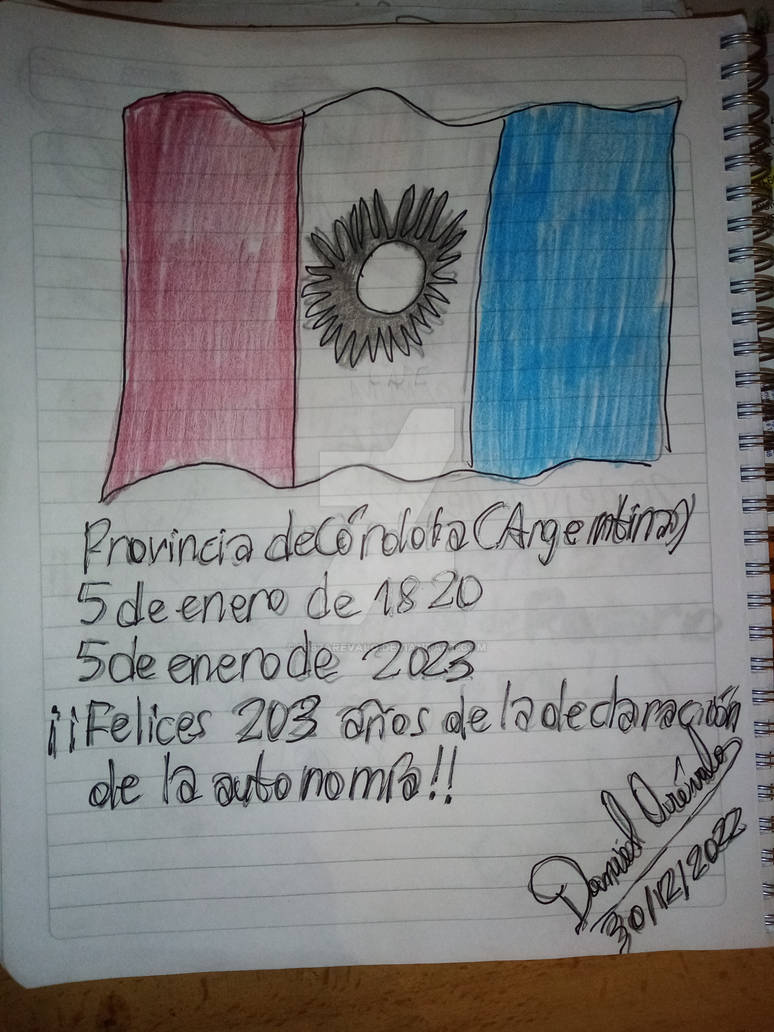 Provincia de Córdoba (Argentina)
5 de enero de 1820
5 de enero de 2023
¡¡Felices 203 años de la declaración
de la autonomía!!
Daniel Arévalo
30/12/2022